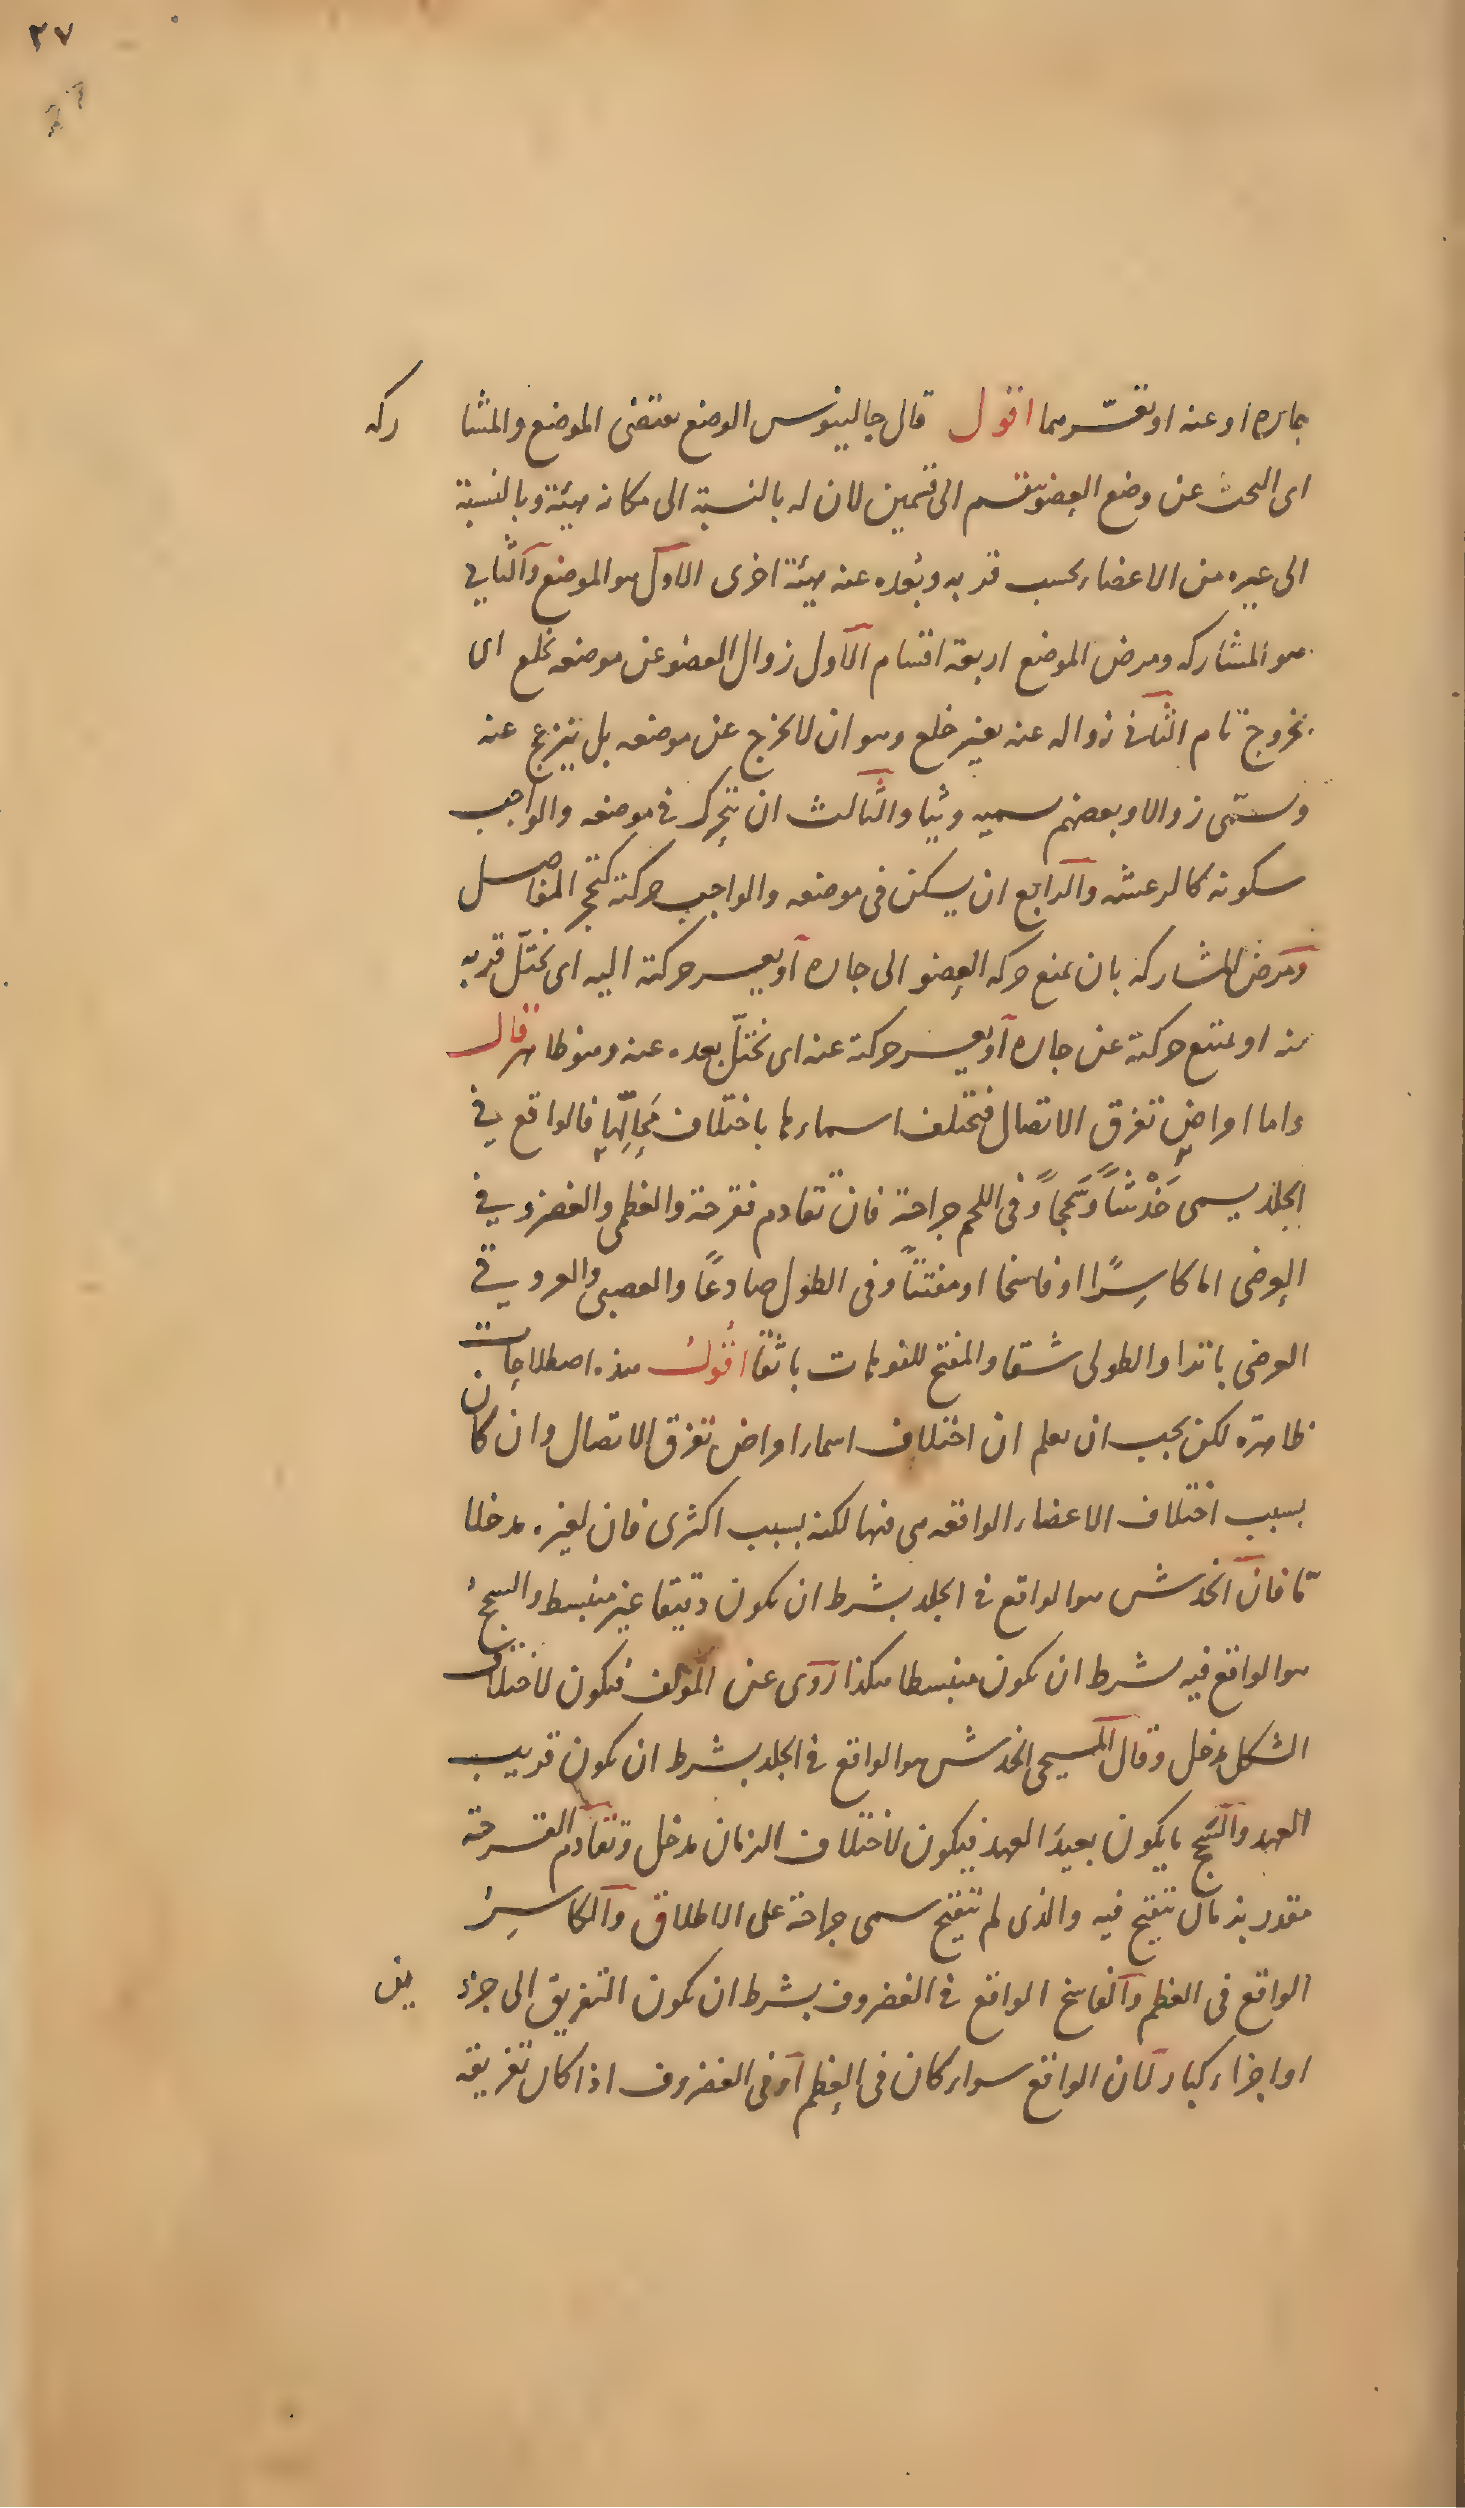 ٢٧
جاره او عنه او تعسرهما اقول قال جالينوس الوضع يقتضى الموضع والمشاركه
اى البحث عن وضع العضو ينقسم الى قسمين لان له بالنسبة الى مكانه هيئة وبالنسبة
الى غيره من الاعضاء بحسب قربه وبُعده عنه هيئة اخرى الاول هو الموضع والثانى
هو المشاركه ومرض الموضع اربعة اقسام الاول زوال العضو عن موضعه بخلع اى
بخروج تام الثانى زواله عنه بغير خلع وهو ان لا يخرج عن موضعه بل ينزعج عنه
وسمّى زوالا وبعضهم سميه وثيا والثالث ان يتحرك فى موضعه والواجب
سكونه كالرعشه والرابع ان يسكن فى موضعه والواجب حركته كتحجر المفاصل
ومرض المشاركه بان يمنع حركه العضو الى جاره او يعسر حركته اليه اى يختلّ قربه
منه او يمتنع حركته عن جاره او يعسر حركته عنه اى يختلّ بعده عنه وهو ظاهر قال
واما امراض تفرق الاتصال فتختلف اسماءها باختلاف مَحالِّها فالواقع فى
الجلد يسمى خَدْشاً وسَحجاً وفى اللحم جراحة فان تقادم فقرحة والعظمى والغضروفى
العرضى اما كاسِرًا او فاسخا او مفتتاً وفى الطول صادعًا والعصبى والعروقى
العرضى باترا والطولى شقا والمفتح للفوهات باثقا اقول هذه اصطلاحات
ظاهرة لكن يجب ان يعلم ان اختلاف اسماء امراض تفرق الاتصال وان كان
بسبب اختلاف الاعضاء الواقعه هى فيها لكنه بسبب اكثرى فان لغيره مدخلا
مّا فان الخدش هو الواقع فى الجلد بشرط ان يكون دقيقا غير منبسط والسحج
هو الواقع فيه بشرط ان يكون منبسطا هكذا روى عن المؤلف فيكون لاختلاف
الشكل مدخل وقال المسيحى الخدش هو الواقع فى الجلد بشرط ان يكون قريب
العهد والسَحج ما يكون بعيدَ العهد فيكون لاختلاف الزمان مدخل وتقادم القرحة
مقدر بزمان تتقيح فيه والذى لم تتقيح سمى جراحة على الاطلاق والكاسِرُ
الواقع فى العظم والفاسخ الواقع فى الغضروف بشرط ان يكون التفريق الى جزءين
او اجزاء كبار لان الواقع سواء كان فى العظم او فى الغضروف اذا كان تفريقه